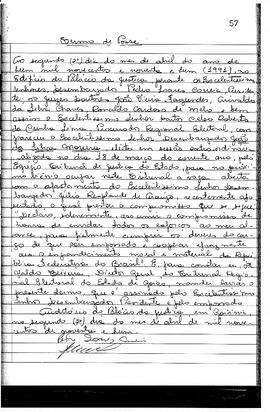 57
Termo de Posse
Ao segundo (2º) dia do mês de abril do ano de
hum mil novecentos e noventa e hum (1991), no
Edifício do Palácio da Justiça, perante os Excelentíssimos
Senhores Desembargador Pedro Soares Correia, Presiden-
te, os juízes doutores José Vieira Fagundes,
da Silva Chaves, Ronaldo Cardoso de Melo, e bem
assim o Excelentíssimo Senhor Doutor Celso Roberto
da Cunha Lima, Procurador Regional Eleitoral, com-
pareceu o Excelentíssimo Senhor Desembargador João
da Silva eleito em sessão extraordinária
realizada no dia 18 de março do corrente ano, pelo
Egrégio Tribunal de Justiça do Estado, para no
biênio ocupar neste Tribunal a vaga aberta
com o afastamento do Excelentíssimo Senhor Desem-
bargador Júlio de Araújo,
o qual prestou o compromisso que se segue:
"Declaro, solenemente, assumir o compromisso de
honra de envidar todos os esforços ao meu al-
cance para fielmente cumprir os deveres do car-
go de que sou empossado e cooperar eficazmente
para o engrandecimento moral e material da Repú-
blica Federativa do Brasil". E, para constar eu,
Diretor Geral do Tribunal Regio-
nal Eleitoral do Estado de Goiás, mandei lavrar o
presente termo, que é assinado pelo Excelentíssimo
Senhor Desembargador Presidente e pelo empossado.
Auditório do Palácio da Justiça, em Goiânia,
ao segundo (2º) dia do mês de abril de mil nove-
centos e noventa e hum.